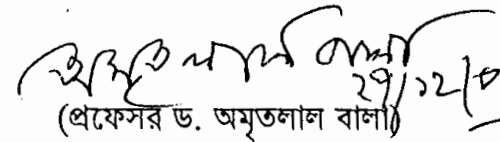 অমৃতলাল বালা
(প্রফেসর ড. অমৃতলাল বালা)